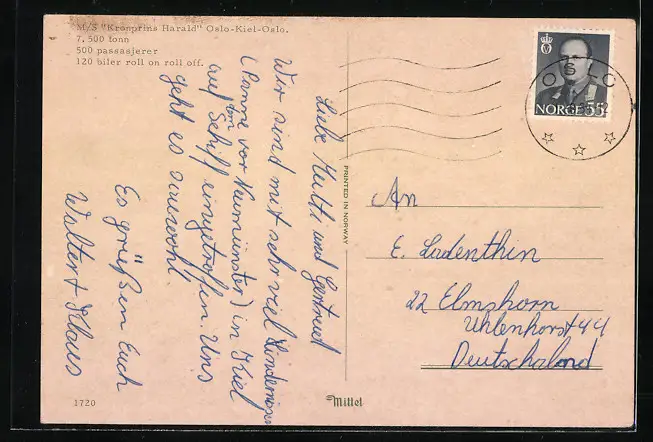 M/S "Kronprins Harald" Oslo-Kiel-Oslo.
7. 500 tonn
500 passasjerer
120 biler roll on roll off.
Liebe Mutti und Gertrud
Wir sind mit sehr viel Hindernissen
(Panne vor Neumünster) in Kiel
auf dem Schiff eingetroffen. Uns
geht es sauwohl.
Es grüßen Euch
Walter + Klaus
PRINTED IN NORWAY
OSLO
NORGE 55
An
E. Ladenthin
22 Elmshorn
Uhlenhorst 44
Deutschalond
1720
Mittet